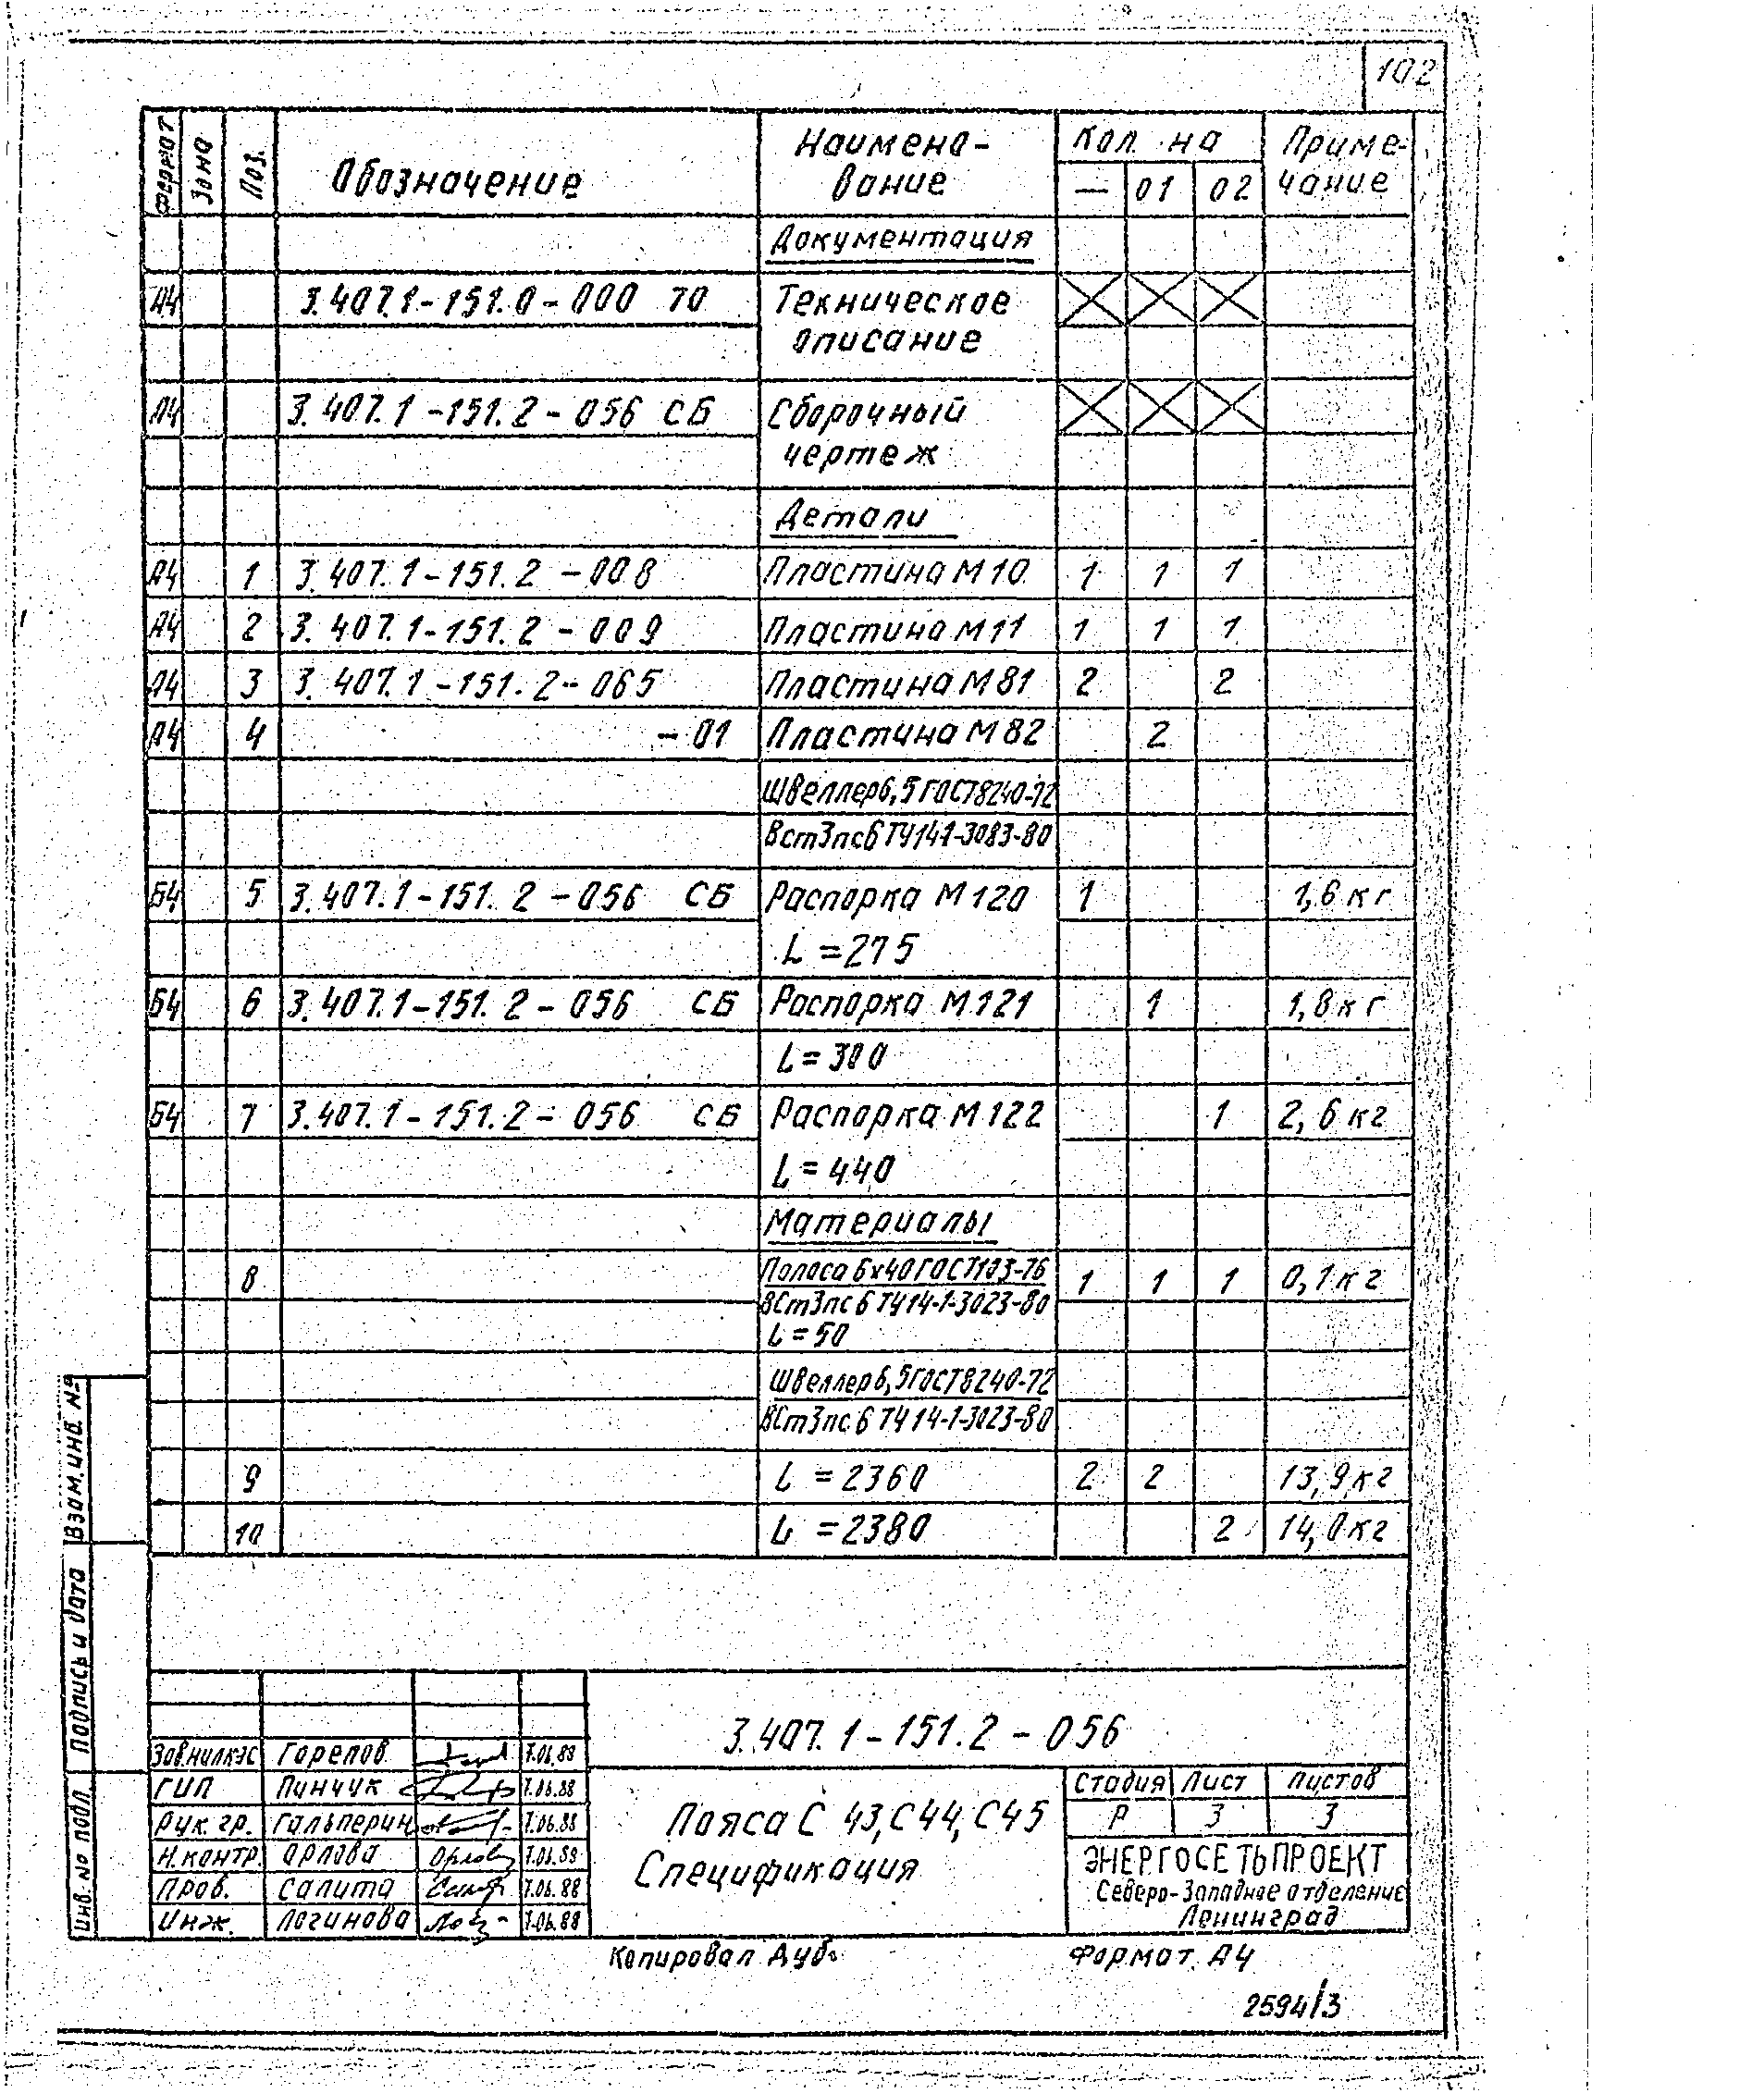 102
Формат Зона Поз. Обозначение Наимено-вание Кол. на — 01 02 Приме-чание
Документация
А4 3.407.1-151.0-000 ТО Техническое
описание
А4 3.407.1-151.2-056 СБ Сборочный
чертеж
Детали
А4 1 3.407.1-151.2-008 Пластина М10 1 1 1
А4 2 3.407.1-151.2-009 Пластина М11 1 1 1
А4 3 3.407.1-151.2-065 Пластина М81 2 2
А4 4 -01 Пластина М82 2
Швеллер 6,5 ГОСТ 8240-72
ВСт3пс6 ТУ141-3083-80
Б4 5 3.407.1-151.2-056 СБ Распорка М120 1 1,6 кг
L=275
Б4 6 3.407.1-151.2-056 СБ Распорка М121 1 1,8 кг
L=300
Б4 7 3.407.1-151.2-056 СБ Распорка М122 1 2,6 кг
L=440
Материалы
8 Полоса 6х40 ГОСТ103-76 1 1 1 0,1 кг
ВСт3пс6 ТУ14-1-3023-80
L=50
Швеллер 6,5 ГОСТ 8240-72
ВСт3пс6 ТУ14-1-3023-80
9 L=2360 2 2 13,9 кг
10 L=2380 2 14,0 кг
Взам. инв. №
Подпись и дата
Инв. № подл.
3.407.1-151.2-056
Зав.нилкэс Горелов 7.06.88
ГИП Пинчук 7.06.88
Рук. гр. Гальперин 7.06.88
Н. контр. Орлова Орлову 7.06.88
Пров. Салита 7.06.88
Инж. Логинова 7.06.88
Пояса С 43, С44, С45
Спецификация
Стадия Лист Листов
Р 3 3
ЭНЕРГОСЕТЬПРОЕКТ
Северо-Западное отделение
Ленинград
Копировал Дуб. Формат А4
2594/3